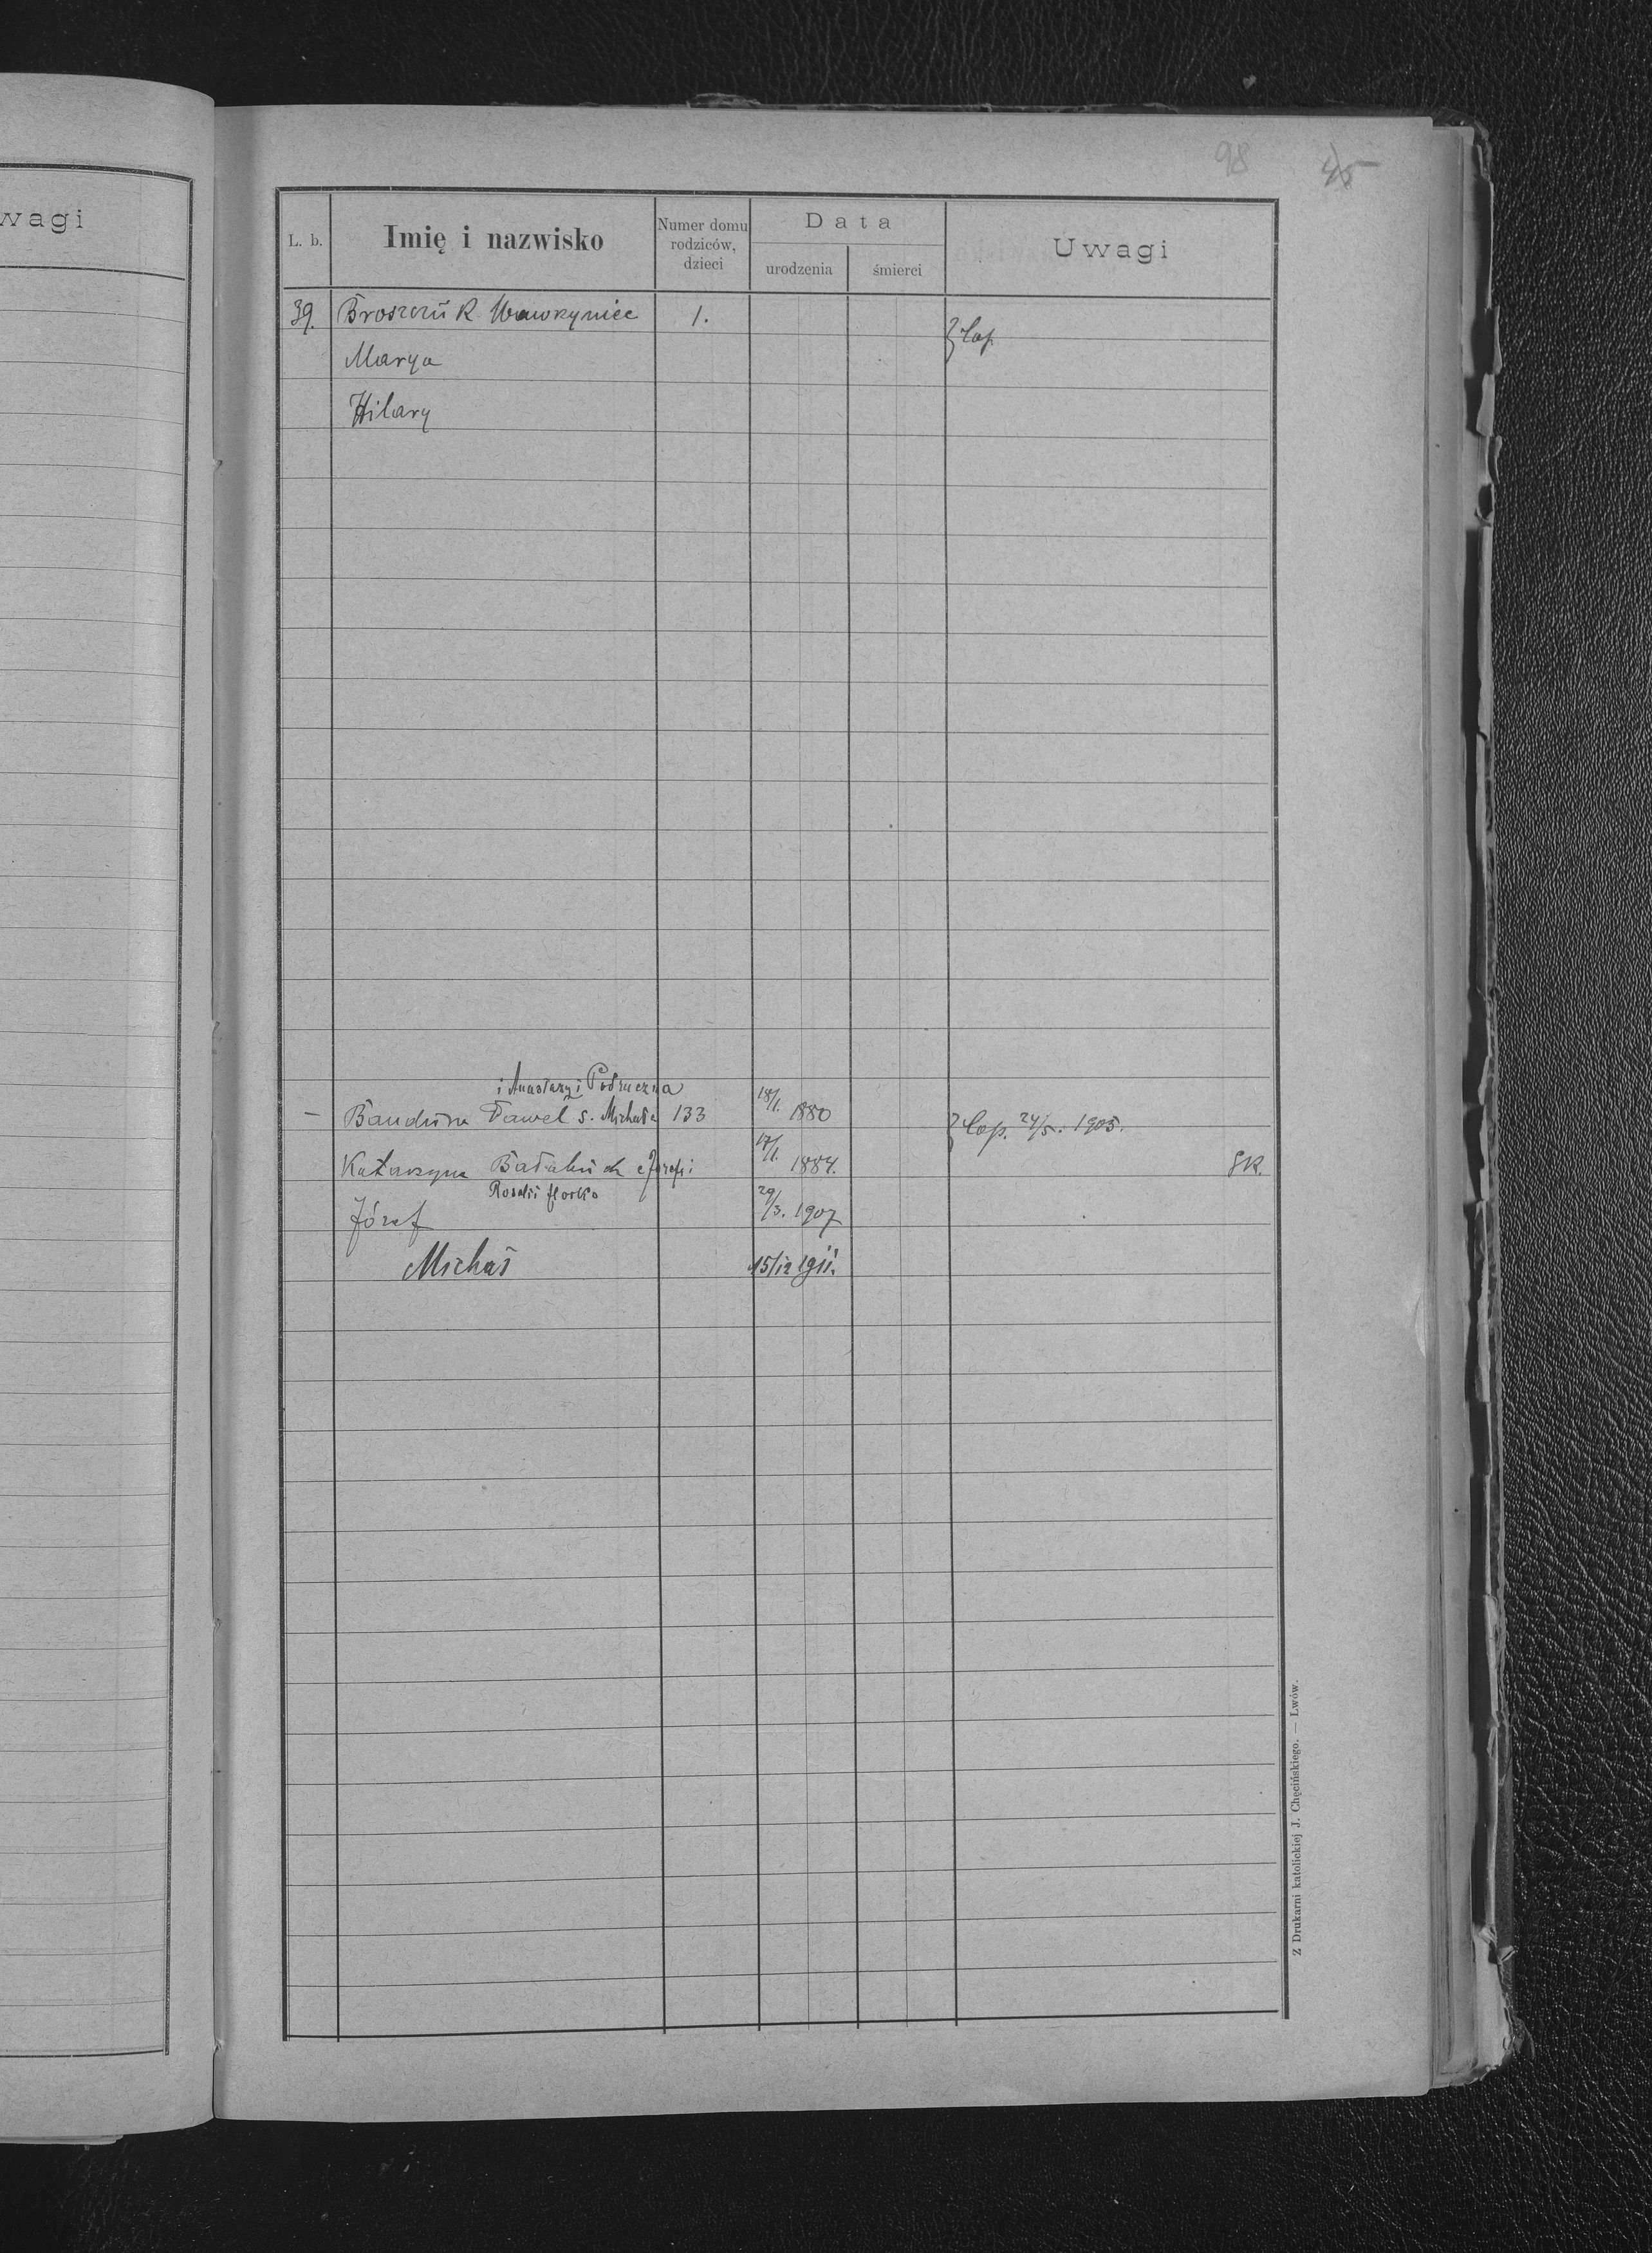 wagi
98 45
L. b. Imię i nazwisko Numer domu rodziców, dzieci Data urodzenia śmierci Uwagi
39. Broszczuk Wawrzyniec 1.
} Cop.
Marya
Hilary
i Anastazyi Podruczna
– Bandura Paweł s. Michała 133 18/1. 1880
} Cop. 24/5. 1905.
Katarzyna Bałabuch c Józefa i 17/1. 1884. gk.
Rosalii Horko
Józef 29/3. 1907
Michał 15/12 1911.
Z Drukarni katolickiej J. Chęcińskiego. — Lwów.